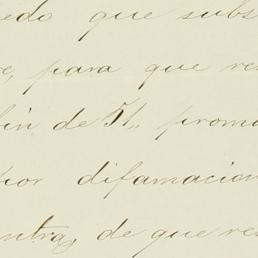 edo que subs
e, para que re
fin de 51,, promo
por difamacion
ntra, de que re